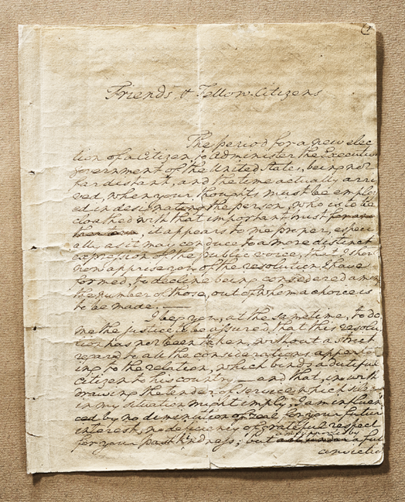 Friends & Fellow-Citizens
The period for a new elec
tion of a Citizen, to administer the Executive
government of the United States, being not
far distant, and the time actually arri
ved, when your thoughts must be employ
ed in designating the person, who is to be
cloathed with that important trust
it appears to me proper, especi
ally as it may conduce to a more distinct
expression of the public voice, that I sho
apprise you of the resolution I have
formed, to decline being considered among
the number of those, out of whom a choice is
to be made.
I beg you, at the same time, to do
me the justice to be assured, that this resolu
tion has not been taken, without a strict
regard to all the considerations apper
ing to the relation, which binds a dutiful
citizen to his country — and that, in with
drawing the tender of service which silence
in my situation might imply, I am influen
ced by no diminution of zeal for your future
interest, no deficiency of grateful respect
for your past kindness; but full